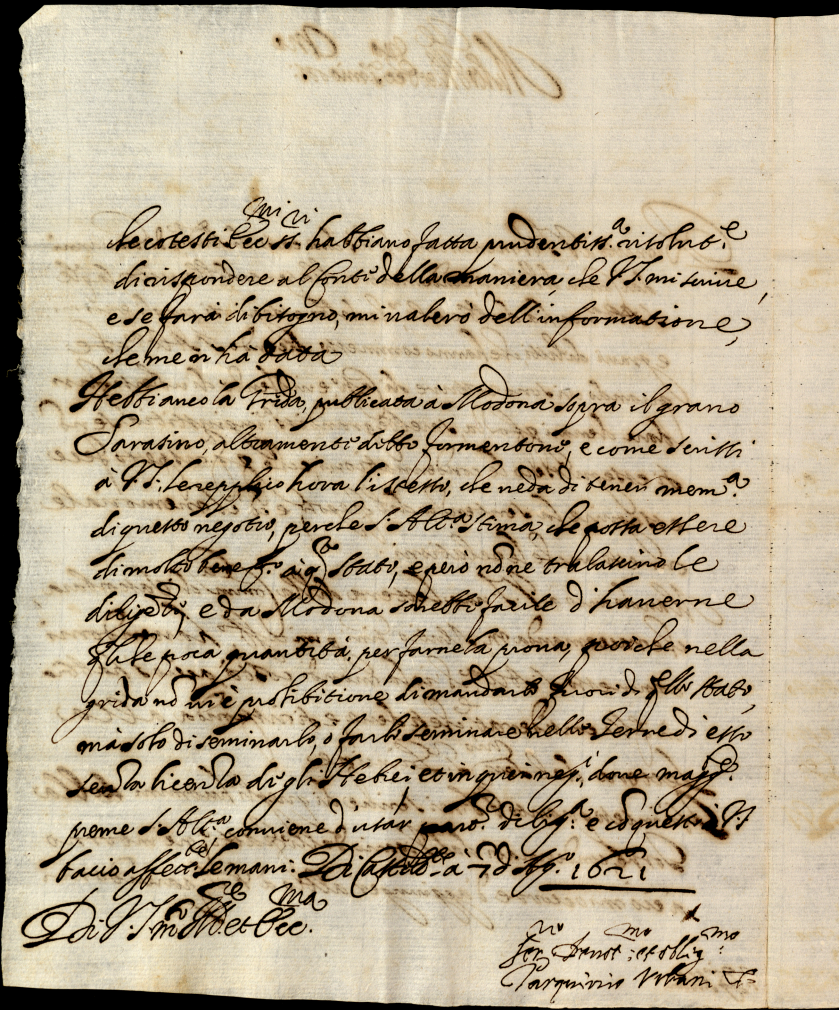 che cotesti Ecc.mi ss.ri habbiano fatta prudentiss.a risolut.e
di rispondere al Conte della maniera, che V.S. mi scrive,
e se farà di bisogno, mi valerò dell'informatione,
che me n'hà data
Hebbi anco la Grida, publicata à Modona sopra il grano
Sarasino, altramente ditto formentone, e come scrissi
à V.S. le replico hora l'istesso, che ne dà di tener mem.a
di questo negotio, perche S. Alt.a stima, che possa essere
di molto benef.o à q.to Stato, e però nõ ne tralascino le
e da Modona sarebbe facile d'haverne
poca quantità, per farne la prova, poiche nella
grida nõ vi è prohibitione di mandarlo fuori di Stato,
mà solo di seminarlo, o farlo seminare nelle Terre di esso
senza licenza de gli et in quei neg.i, dove magg.e
preme S. Alt.a conviene d'usar dilig.a e cõ questo à V.S.
bacio affett.te le mani. Di à 7 di Ag.o 1621
Di V.S. m.to Ill.re et Ecc.ma
Ser.re Devot.mo et oblig.mo
Tarquinio Urbani